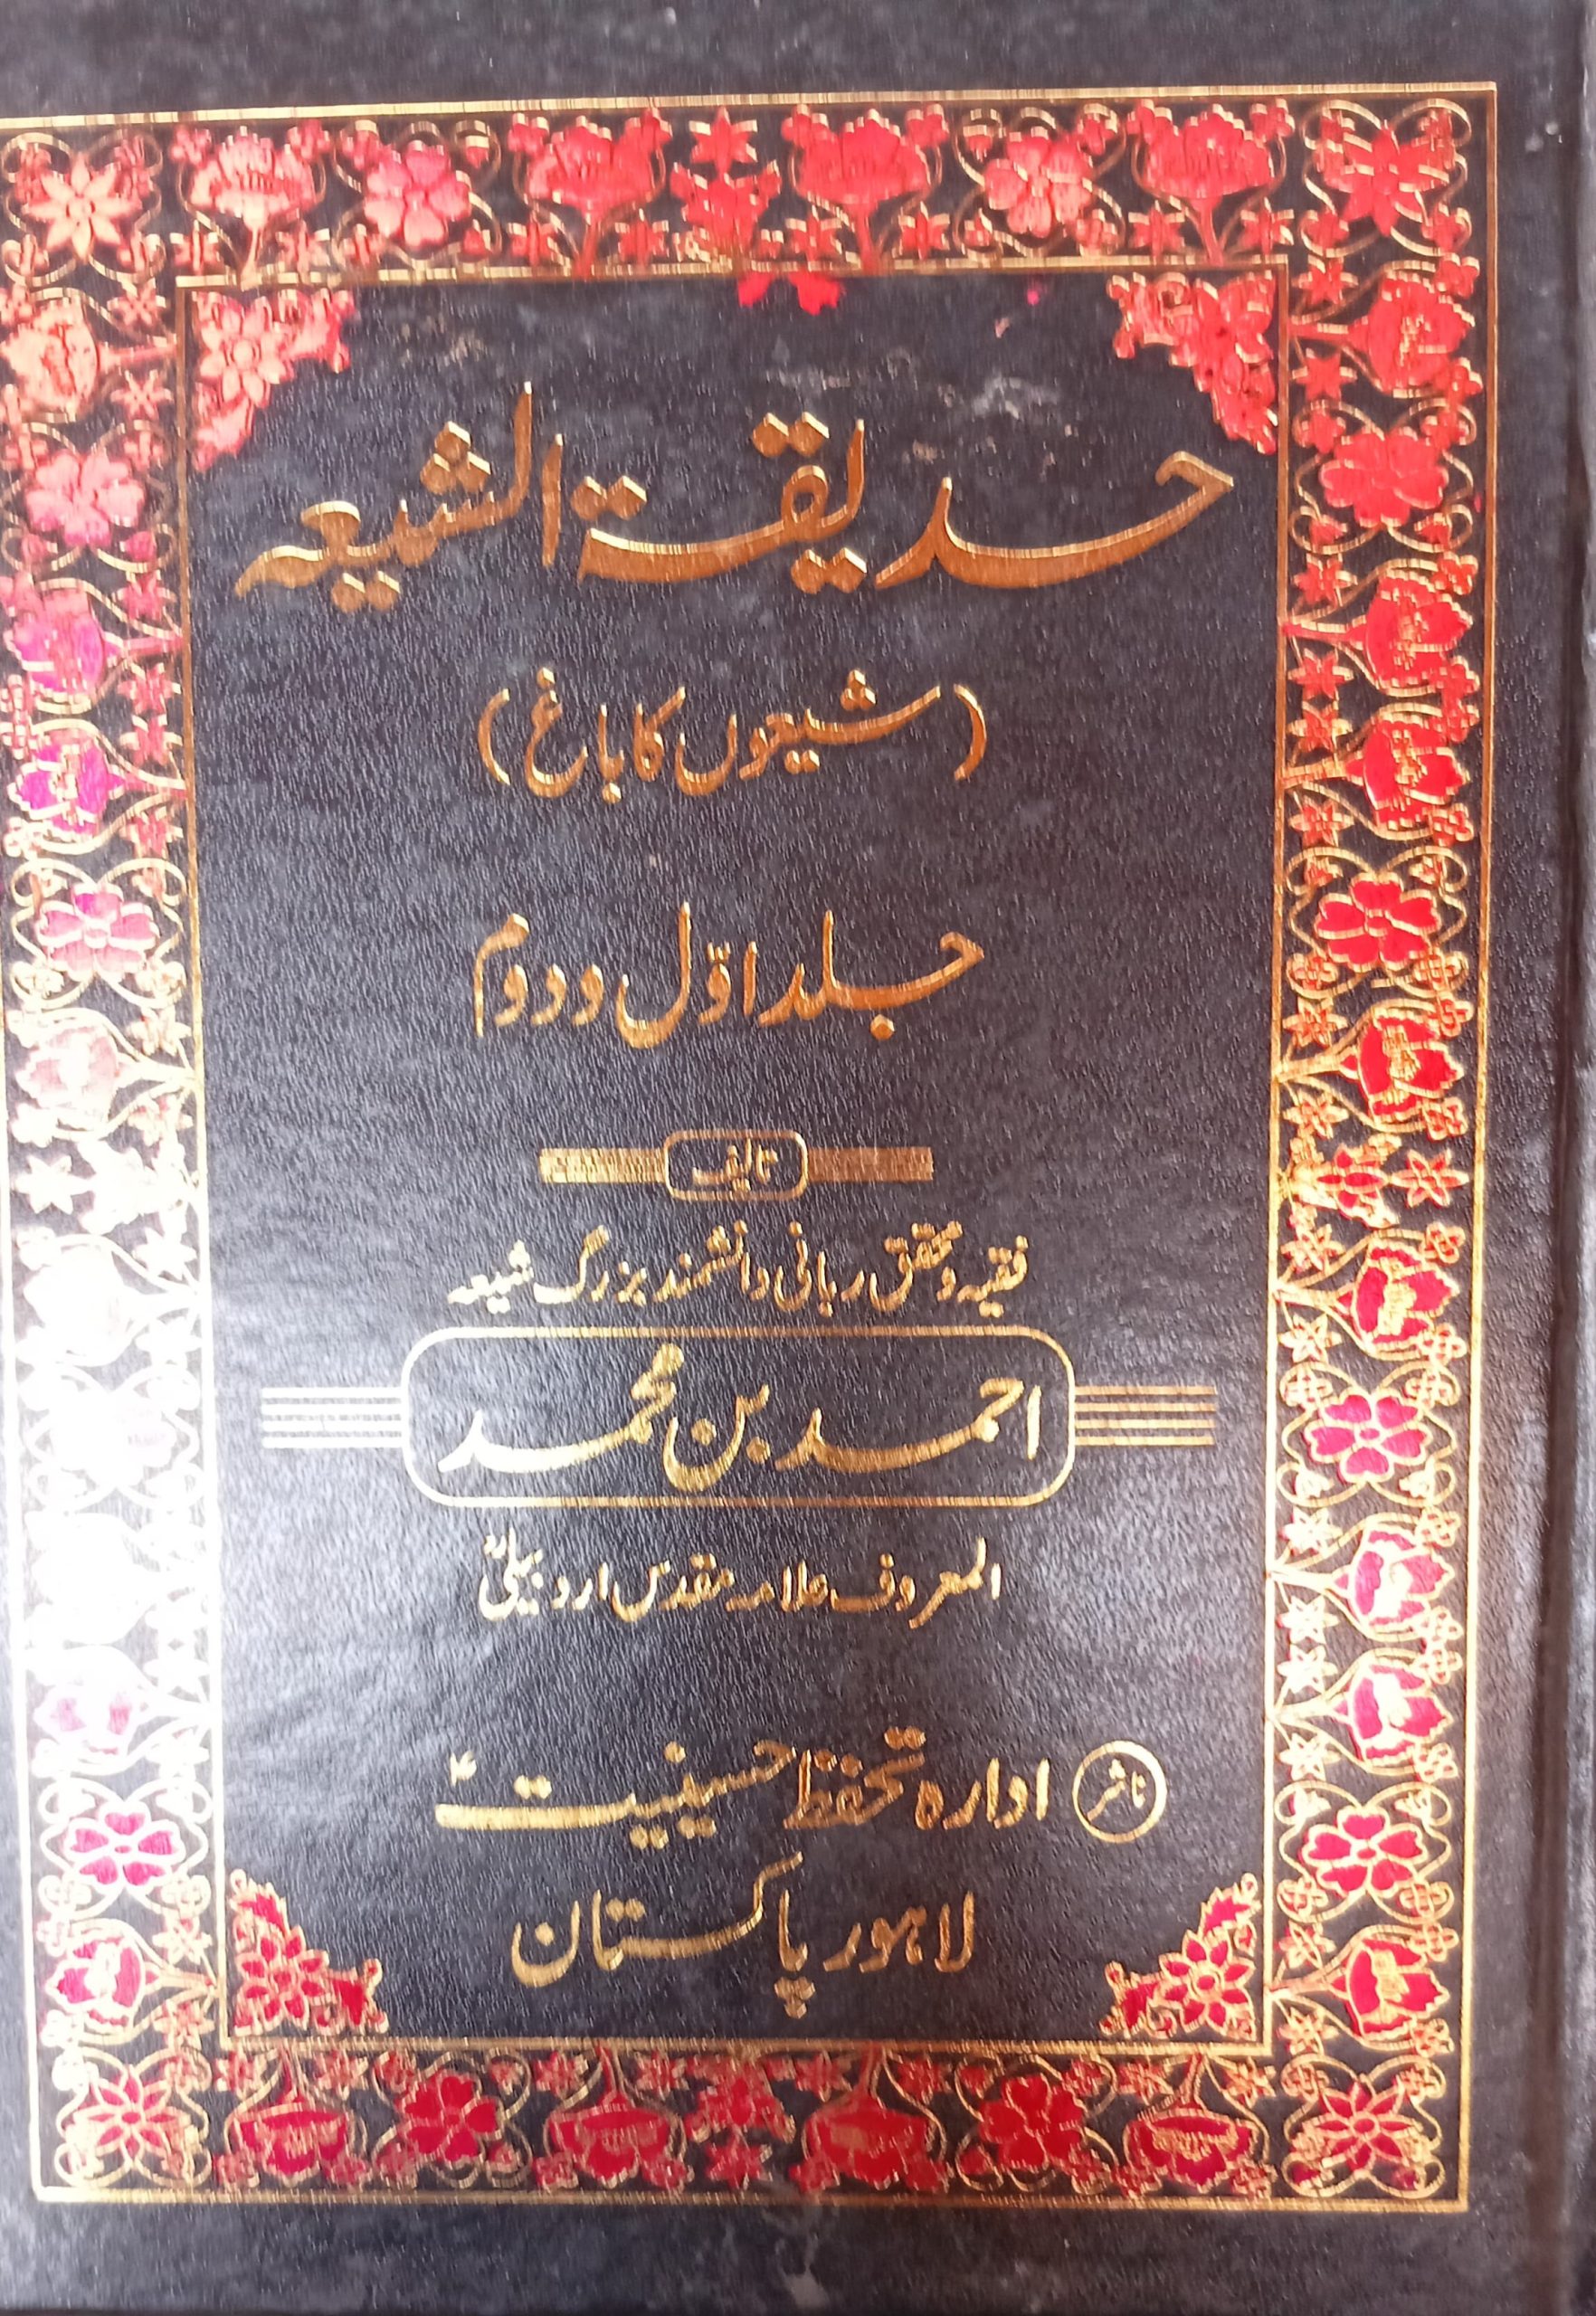 حدیقۃ الشیعہ
(شیعوں کا باغ)
جلد اوّل و دوم
تالیف
فقیہ و محقق ربانی دانشمند بزرگ شیعہ
احمد بن محمد
المعروف علامہ مقدس اردبیلیؒ
ناشر ادارہ تحفظ حسینیتؑ
لاہور پاکستان